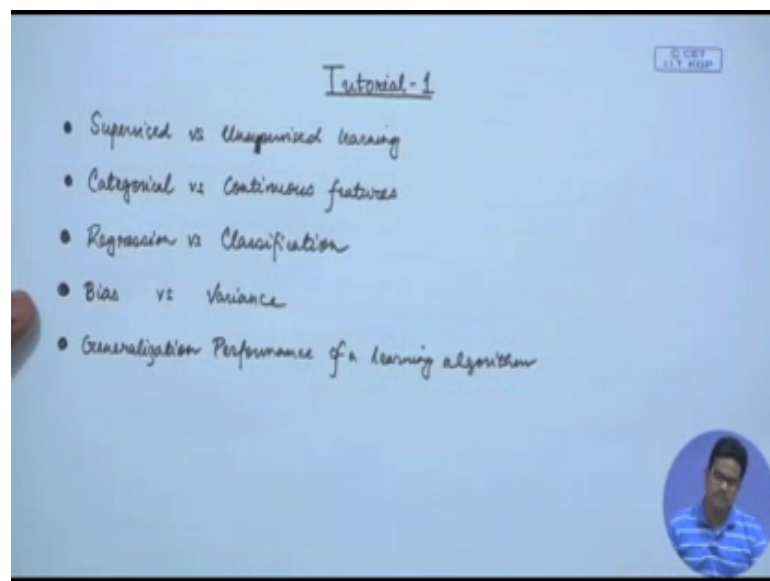 © CET
I.I.T. KGP
Tutorial-1
• Supervised vs Unsupervised learning
• Categorical vs Continuous features
• Regression vs Classification
• Bias vs Variance
• Generalization Performance of a learning algorithm